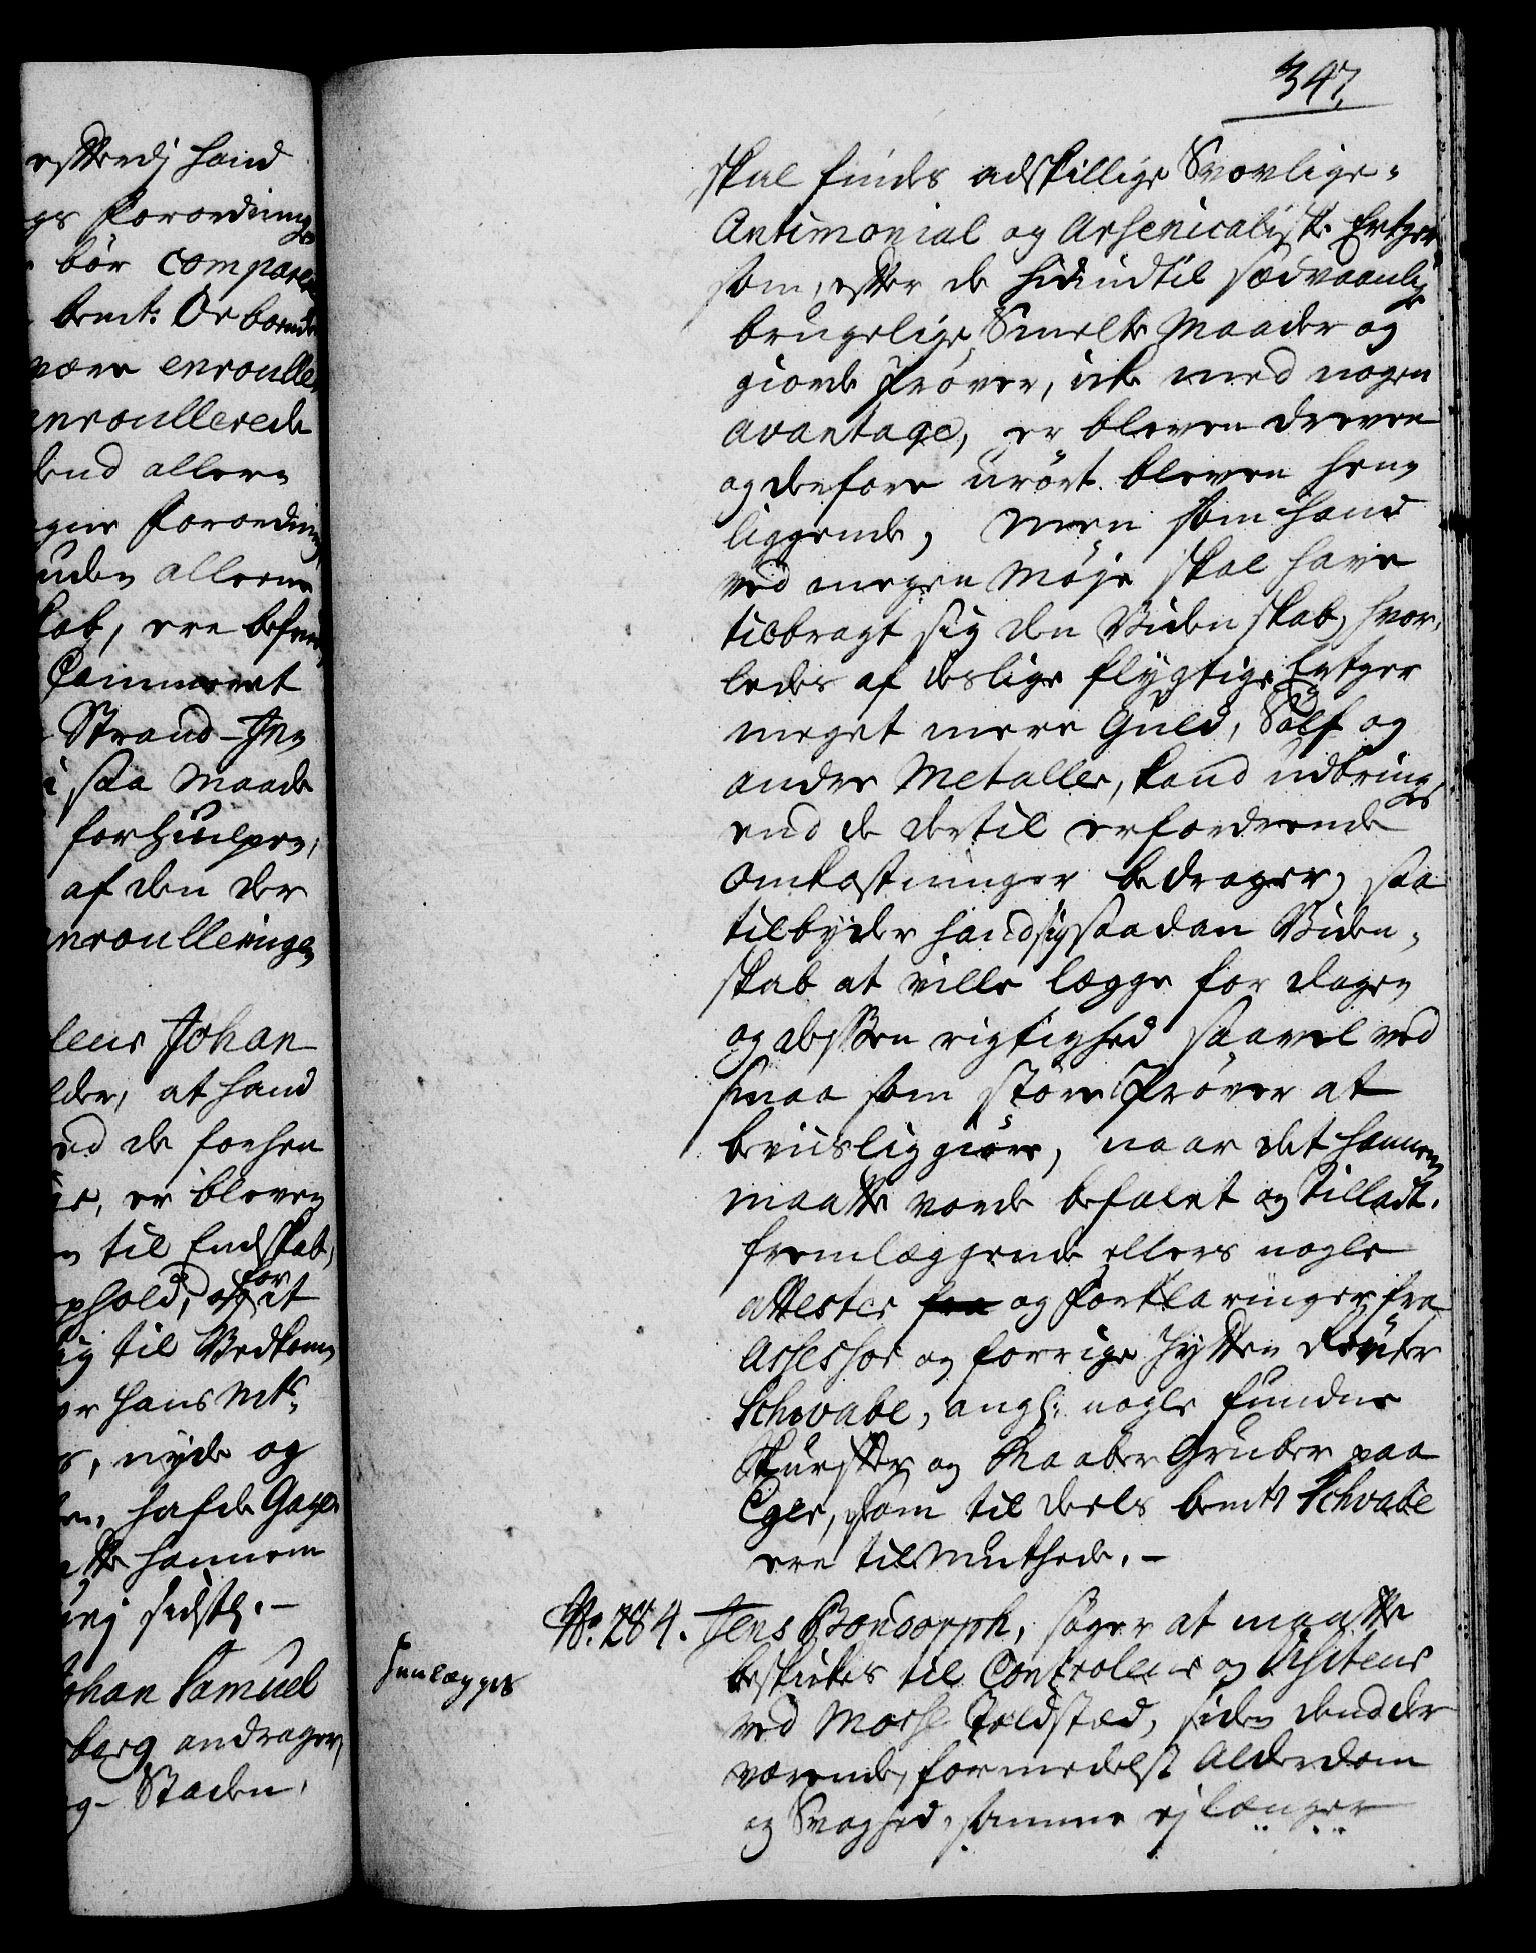 efterdj hand
gs Forordning
bör compare
bemt: Or
være enroulle
enroullerede
dend aller
gne Forordning
uden allerun
kab, ere befun
Cammeret
Strand-Jn
i saa Maade
forhiulpen,
af den der
nroulleringen
leur Johan
lder, at hand
nd de forhen
er bleven
til Endskab,
phold, for it
sig til Vedkom
or Hans Mts
nyde og
hafde Gage
tte hannem
urj sidstl. -
Johan Samuel
berg andrager,
g- Staden,
347.
skal findes adskillige Svovlige-
Antimonial og Arsenicalisk. Ertzer
som, efter de hidindtil sædvaanlig
brugelige Smelte Maader og
giorde Prøver, icke med nogen
avantage, er bleven dreven
og derfore urört bleven hen-
liggende, Men som hand
ved megen Møje skal have
tilbragt sig den Videnskab, hvor-
ledes af deslige flygtige Ertzer
meget mere Guld, Sølf og
andre Metaller, kand udbringes
end de dertil erfordrende
omkostninger bedrager, saa
tilbyder hand sig saadan Viden-
skab at ville legge for dagen
og dessen rigtighed saavel ved
smaa som störe Prøver at
beviisliggiöre, naar det hannem
maatte vorde befalet og tilladt.
fremlæggende ellers nogle
attester fra og Forklaringer fra
Assessor og forrige Hytten
Schvabe, angl: nogle fundne
Skurffer og Raaber Gruber paa
Eger, som til deels bemte Schvabe
ere tilmuthede. -
No. 284. Jens Bondorph, søger at maatte
Henlægges
beskickes til Controleur og Visiteur
ved Mosse Toldsted, siden dend der
værende, formedelst Alderdom
og Svaghed, samme ej længer